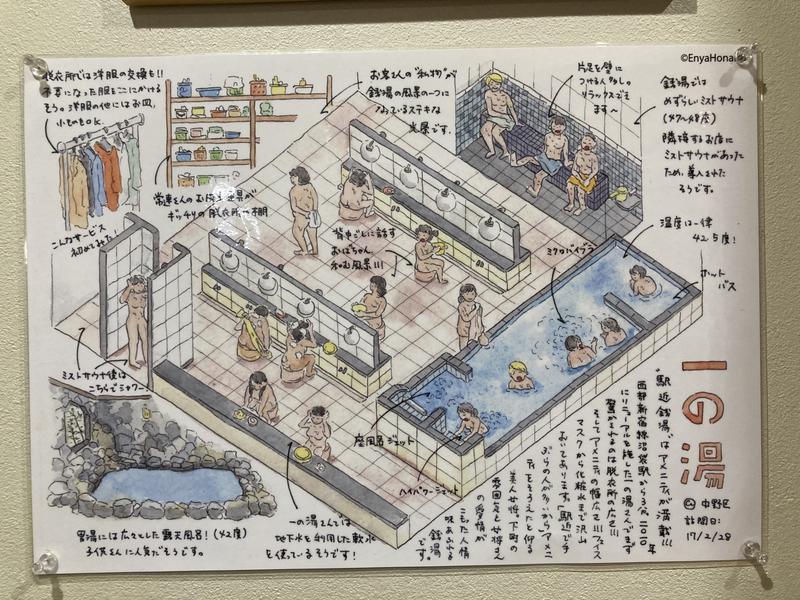 ©EnyaHona
脱衣所では洋服の交換も!!
不要になった服をここにかける
そう。洋服の他にはお皿、
小物もOK.
こんなサービス
初めてみた!
お客さんの"私物"が
銭湯の風景の一つに
なっているステキな
光景です。
常連さんのお風呂道具が
ギッチリの脱衣所の棚
片足を壁に
つける人多し。
リラックスでき
ます〜
銭湯では
めずらしいミストサウナ
(47〜48度)
隣接するお店に
ミストサウナがあった
ため、導入された
そうです。
背中ごしに話す
おばちゃん
和む風景!!!
ミクロバイブラ
温度は一律
42.5度!
ホット
バス
ミストサウナ後は
こちらでシャワー♪
座風呂ジェット
ハイパワージェット
男湯には広々とした露天風呂!(42度)
子供さんに人気だそうです。
一の湯さんでは
地下水を利用した軟水
を使っているそうです!
一の湯
中野区
訪問日:
17/2/28
"駅近銭湯"はアメニティが満載!!!
西武新宿線沼袋駅から3分、2010年
にリニューアルを施した一の湯さんでます
驚かされるのは脱衣所の広さ!!!
そしてアメニティの幅広さ!!!フェイス
マスクから化粧水まで沢山
おいてあります。"駅近で手
ぶらの人が多いから"アメニ
ティをそろえたと仰る
美人女将。下町の
雰囲気と女将さん
の愛情が
こもった人情
味あふれる
銭湯
です。